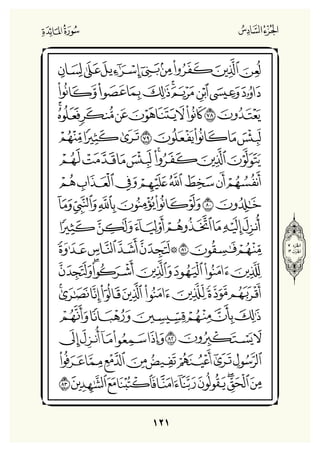 الجُزْءُ السَّادِسُ
سُورَةُ المَائِدَةِ
لُعِنَ ٱلَّذِينَ كَفَرُوا۟ مِنۢ بَنِىٓ إِسْرَٰٓءِيلَ عَلَىٰ لِسَانِ
دَاوُۥدَ وَعِيسَى ٱبْنِ مَرْيَمَ ۚ ذَٰلِكَ بِمَا عَصَوا۟ وَّكَانُوا۟
يَعْتَدُونَ ٧٨ كَانُوا۟ لَا يَتَنَاهَوْنَ عَن مُّنكَرٍ فَعَلُوهُ ۚ
لَبِئْسَ مَا كَانُوا۟ يَفْعَلُونَ ٧٩ تَرَىٰ كَثِيرًا مِّنْهُمْ
يَتَوَلَّوْنَ ٱلَّذِينَ كَفَرُوا۟ ۚ لَبِئْسَ مَا قَدَّمَتْ لَهُمْ
أَنفُسُهُمْ أَن سَخِطَ ٱللَّهُ عَلَيْهِمْ وَفِى ٱلْعَذَابِ هُمْ
خَٰلِدُونَ ٨٠ وَلَوْ كَانُوا۟ يُؤْمِنُونَ بِٱللَّهِ وَٱلنَّبِىِّ وَمَآ
أُنزِلَ إِلَيْهِ مَا ٱتَّخَذُوهُمْ أَوْلِيَآءَ وَلَٰكِنَّ كَثِيرًا
مِّنْهُمْ فَٰسِقُونَ ٨١ ۞ لَتَجِدَنَّ أَشَدَّ ٱلنَّاسِ عَدَٰوَةً
لِّلَّذِينَ ءَامَنُوا۟ ٱلْيَهُودَ وَٱلَّذِينَ أَشْرَكُوا۟ ۖ وَلَتَجِدَنَّ
أَقْرَبَهُم مَّوَدَّةً لِّلَّذِينَ ءَامَنُوا۟ ٱلَّذِينَ قَالُوٓا۟ إِنَّا نَصَٰرَىٰ ۚ
ذَٰلِكَ بِأَنَّ مِنْهُمْ قِسِّيسِينَ وَرُهْبَانًا وَأَنَّهُمْ
لَا يَسْتَكْبِرُونَ ٨٢ وَإِذَا سَمِعُوا۟ مَآ أُنزِلَ إِلَى
ٱلرَّسُولِ تَرَىٰٓ أَعْيُنَهُمْ تَفِيضُ مِنَ ٱلدَّمْعِ مِمَّا عَرَفُوا۟
مِنَ ٱلْحَقِّ ۖ يَقُولُونَ رَبَّنَآ ءَامَنَّا فَٱكْتُبْنَا مَعَ ٱلشَّٰهِدِينَ ٨٣
١٢١